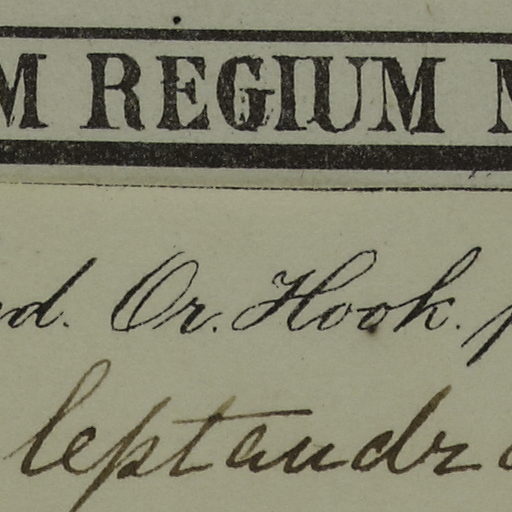 M REGIUM M
nd. Or. Hook. p
leptandra